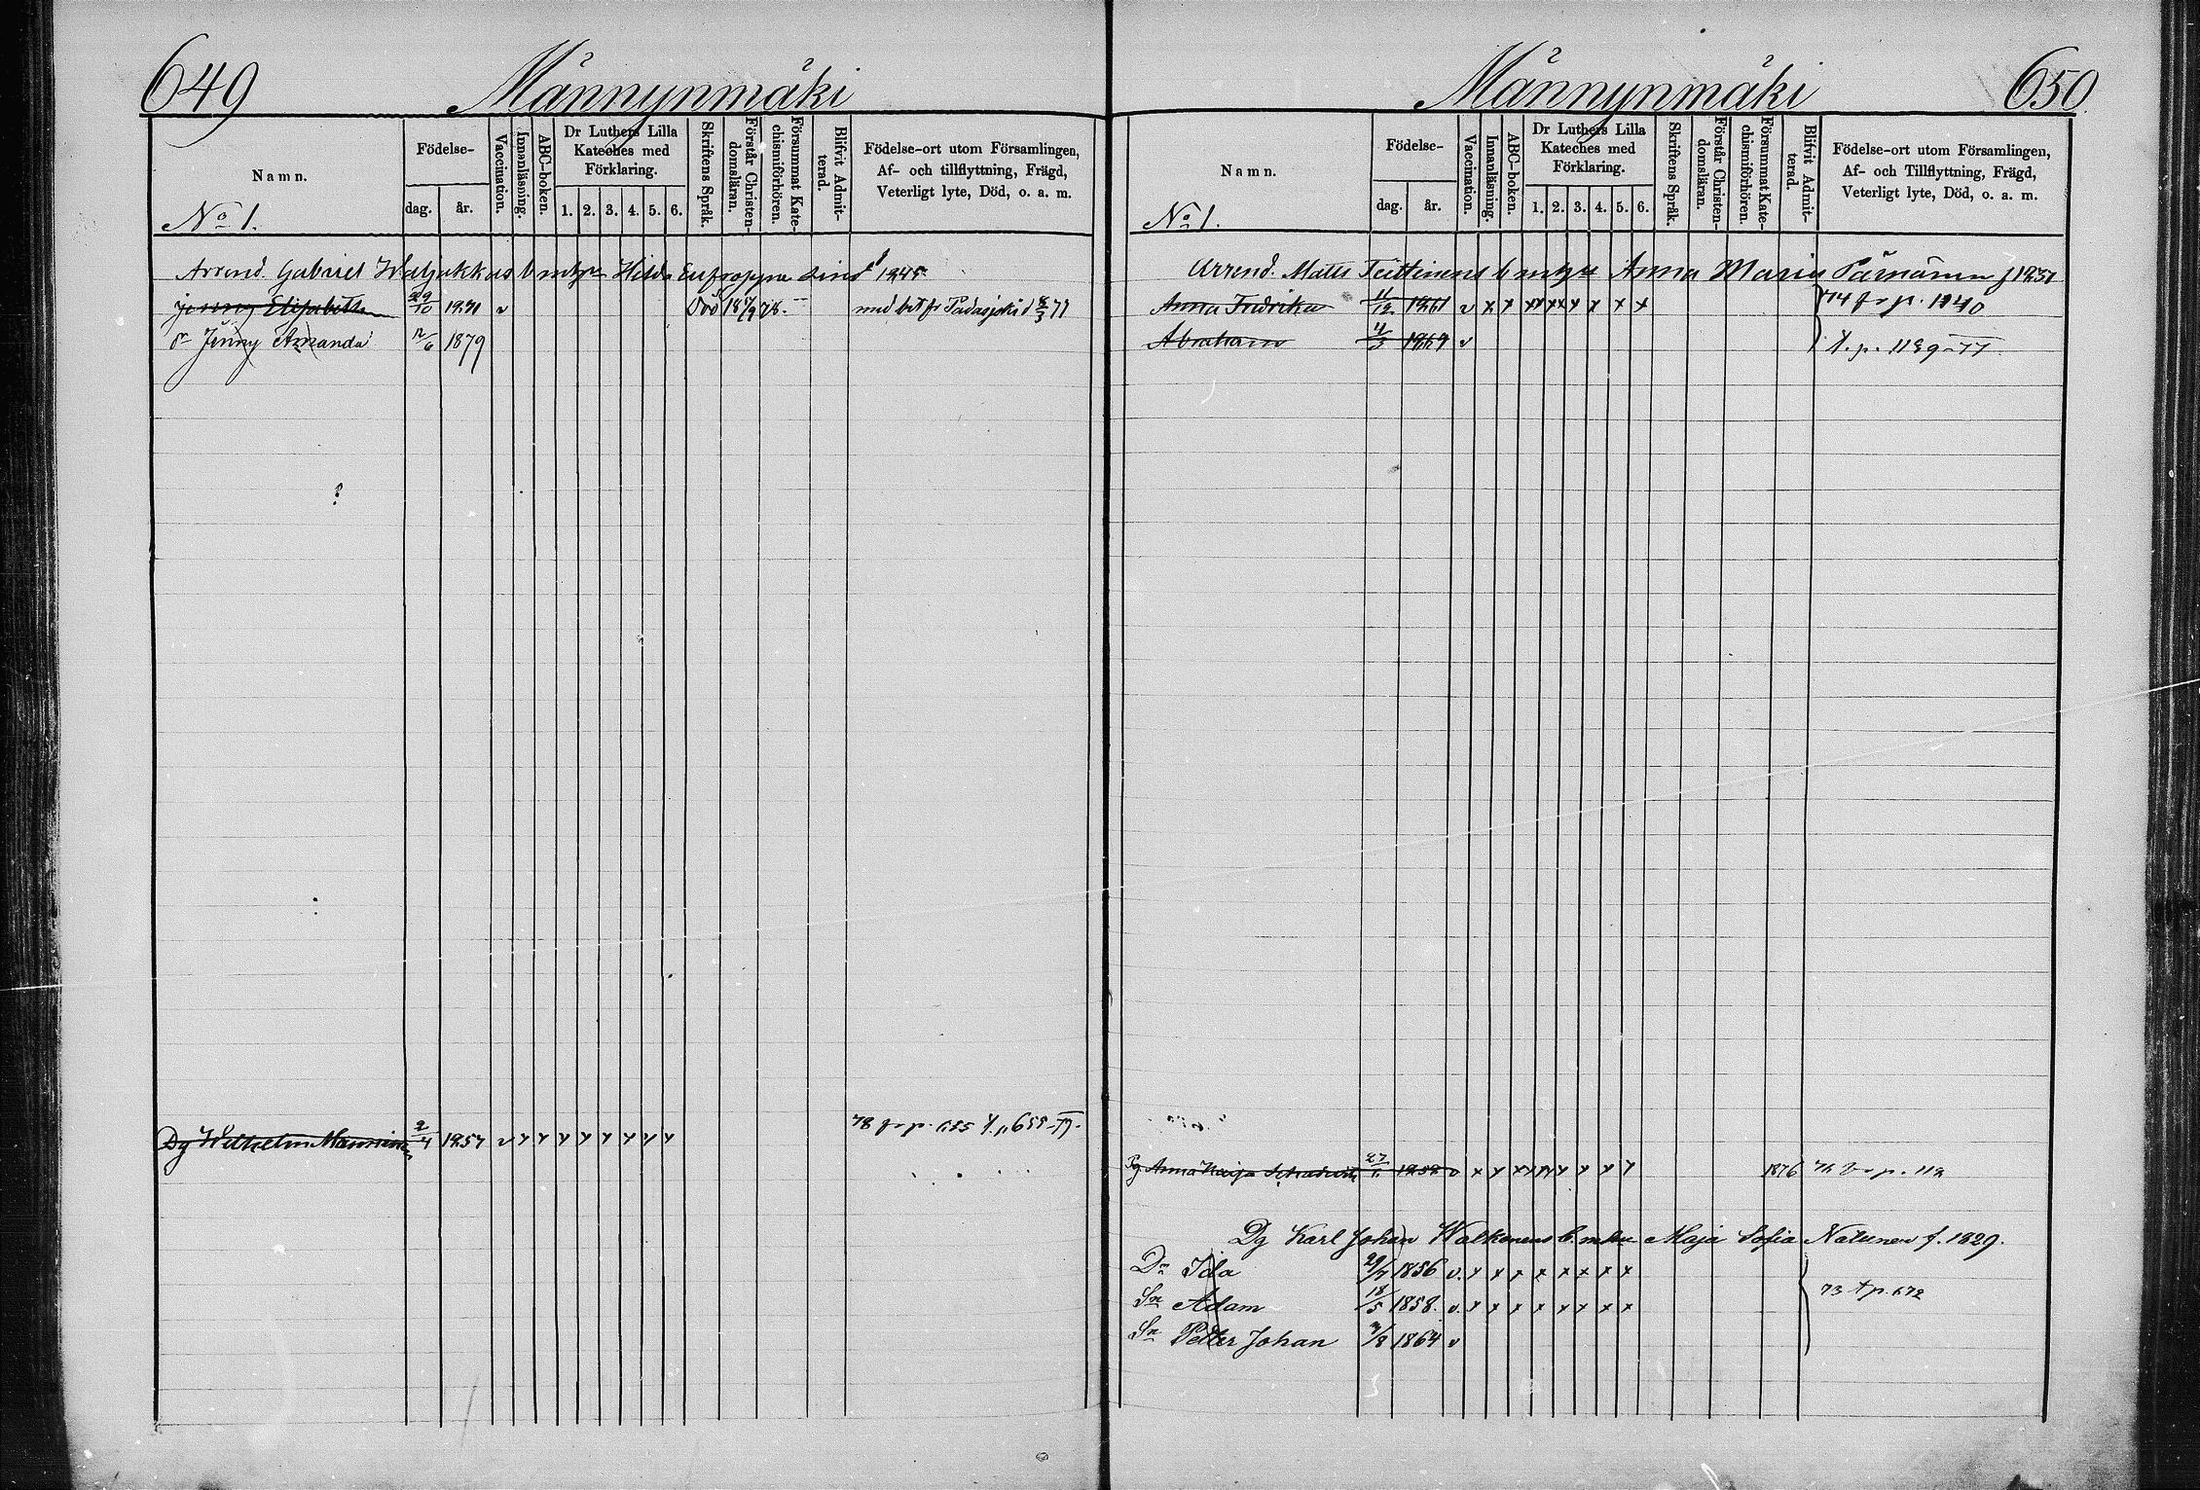 649 Männynmäki
Namn.
No 1.
Födelse-
dag. år.
Vaccination.
Innanläsning.
ABC-boken.
Dr Luthers Lilla
Kateches med
Förklaring.
1. 2. 3. 4. 5. 6.
Skriftens Språk.
Förstår Christen-
domsläran.
Försummat Kate-
chismiförhören.
Blifvit Admit-
terad.
Födelse-ort utom Församlingen,
Af- och tillflyttning, Frägd,
Veterligt lyte, Död, o. a. m.
Arrend. Gabriel b m Hilda 1845
Jenny Elisabeth 29/10 1871 v Död 18 7/9 78. med bet fr Padasjoki d 8/3 77
Dr Jenny Amanda 12/6 1879
78 fr p. 655 t. p 655-79.
Dg Wilhelm Manninen 2/4 1857 v x x x x x x x x
Männynmäki 650
Namn.
No 1.
Födelse-
dag. år.
Vaccination.
Innanläsning.
ABC-boken.
Dr Luthers Lilla
Kateches med
Förklaring.
1. 2. 3. 4. 5. 6.
Skriftens Språk.
Förstår Christen-
domsläran.
Försummat Kate-
chismiförhören.
Blifvit Admit-
terad.
Födelse-ort utom Församlingen,
Af- och Tillflyttning, Frägd,
Veterligt lyte, Död, o. a. m.
Arrend. Matts Teittinens b m Anna Maria Pärnänen f 1831
Anna Fredrika 11/12 1861 v x x x x x x x x 74 fr p. 1140
Abraham 4/3 1869 v t. p. 1139-77
Pg Anna Kaisa 27/1 1858 v x x x x x x x x 1876 p. 112
Dg Karl Johan Walkonens b. m Maja Sofia Natunen f. 1829.
Dr Ida 29/7 1856 v. x x x x x x x x
Sn Adam 18/5 1858. v. x x x x x x x x 73 t p. 672
Sn Petter Johan 3/8 1864 v